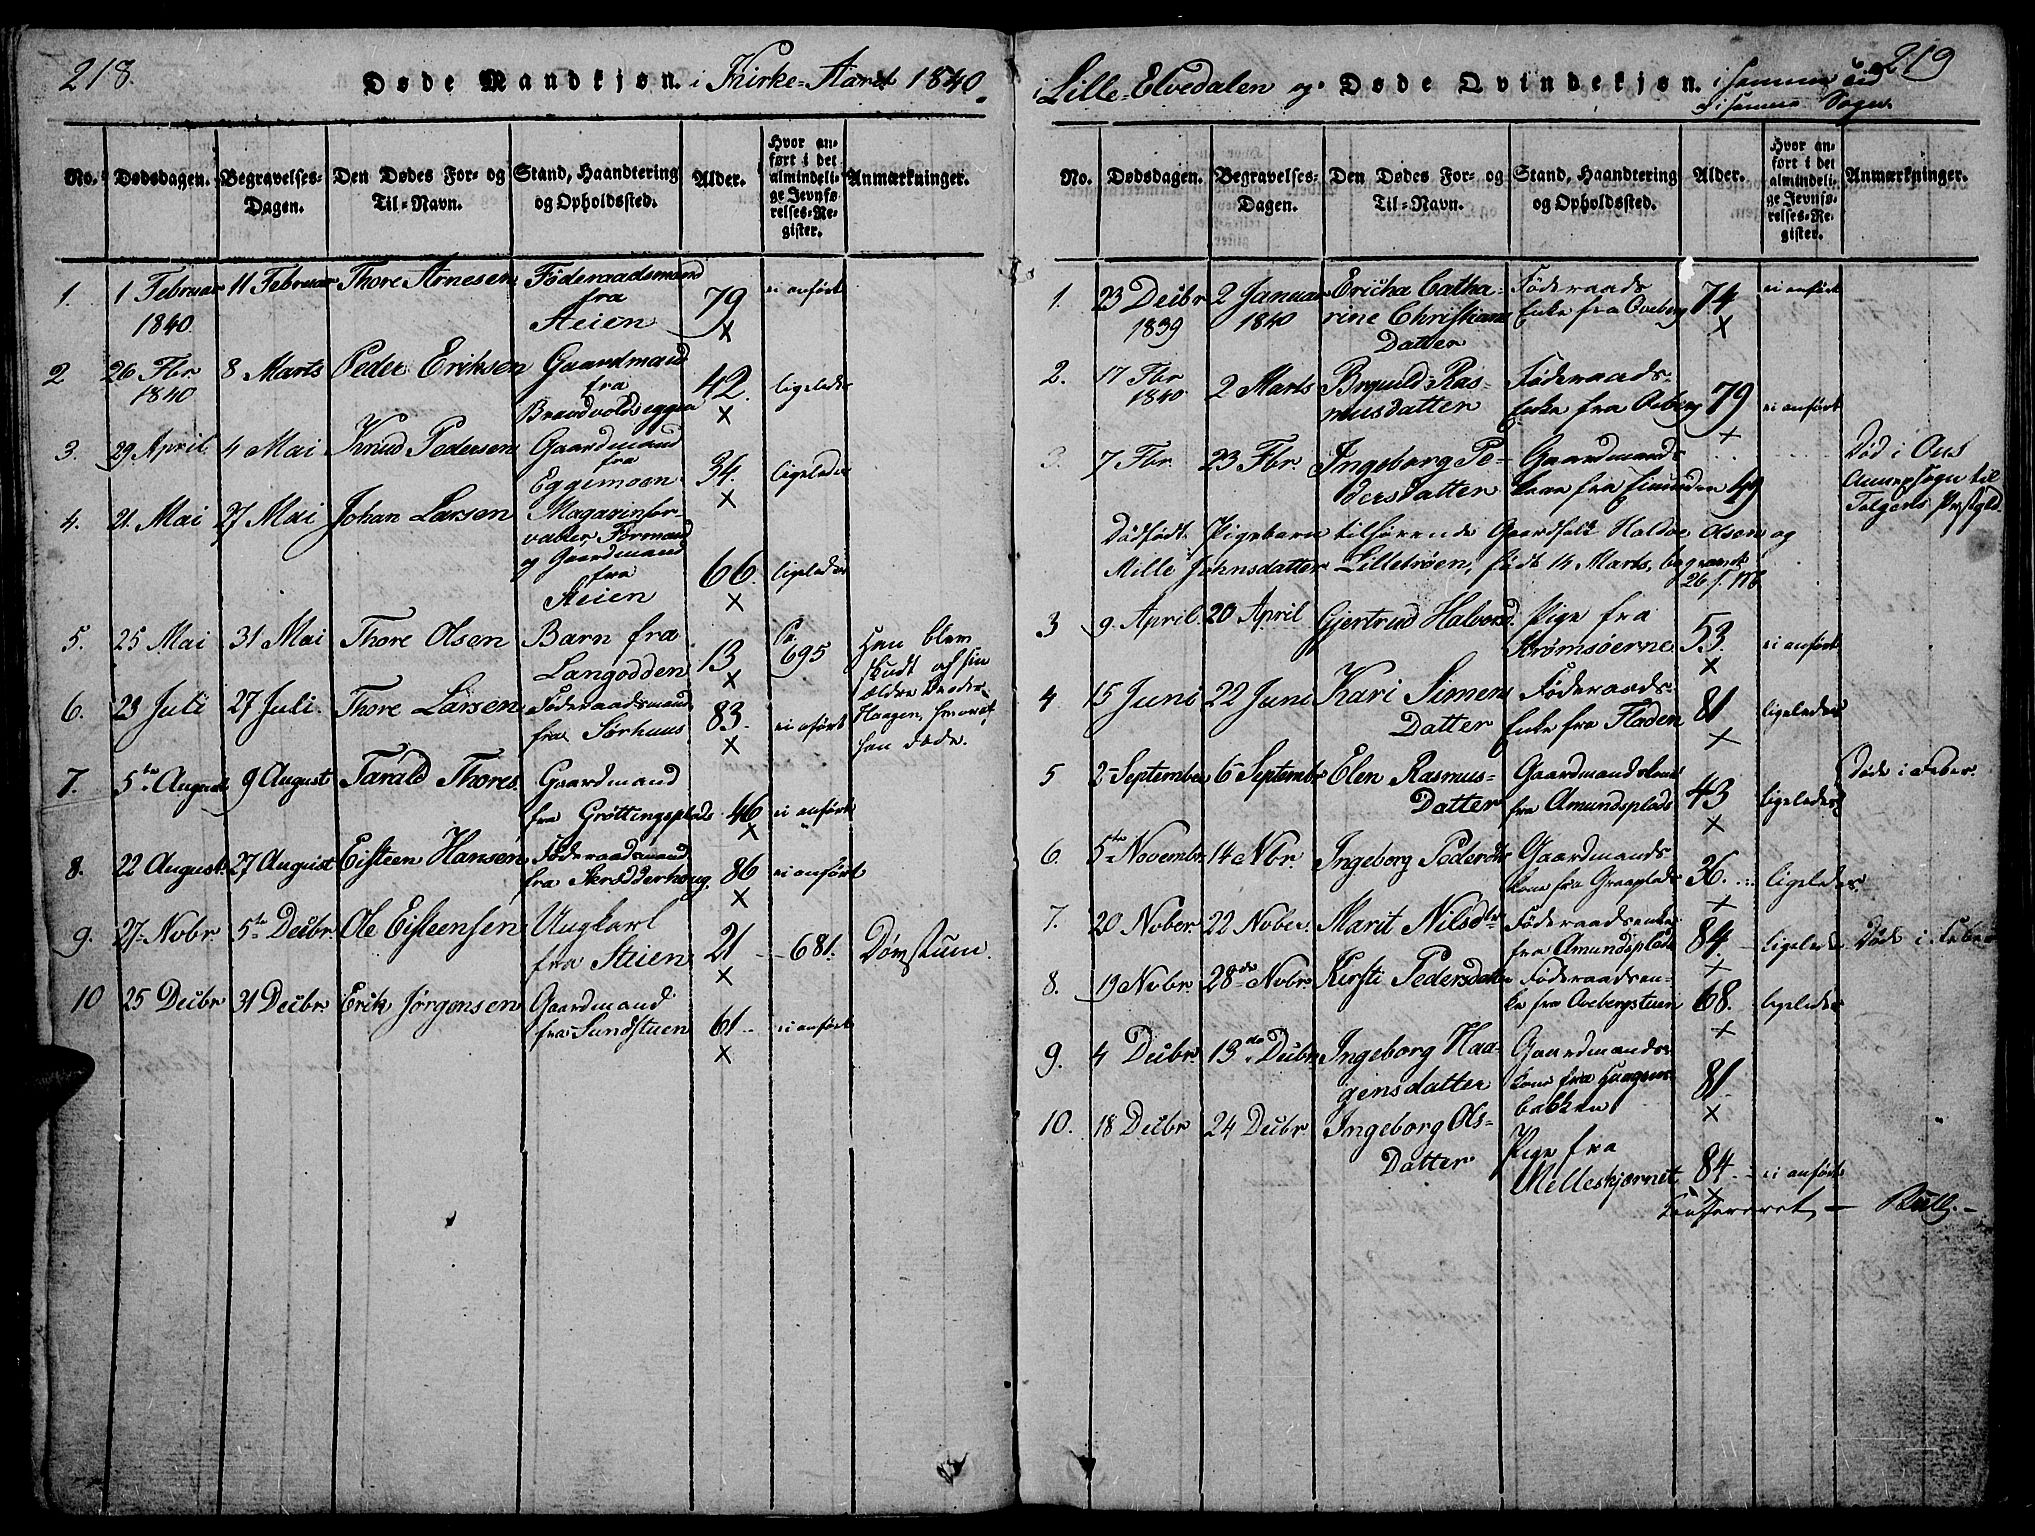 218.
Døde Mandkjøn. i Kirke-Aaret 1840.
No.
Dødsdagen.
Begravelses-Dagen.
Den Dødes For- og Til-Navn.
Stand, Haandtering og Opholdssted.
Alder.
Hvor anført i det almindelige Jevnførelses-Register.
Anmærkninger.
1. 1 Februar 1840 11 Februar Thore Arnesen Føderaadsmand fra Steien 79 ei anført
2 26 Fbr 1840 8 Marts Peder Eriksen Gaardmand fra Brandvoldseggen 42. ligeledes
3. 29 April 4 Mai Knud Pedersen Gaardmand fra Eggemoen 34. ligeledes
4. 21 Mai 27 Mai Johan Larsen Magazinforvalter Formand og Gaardmand fra Steien 66 ligeledes
5. 25 Mai 31 Mai Thore Olsen Barn fra Langodden 13 695 Han blev skudt af sin ældre Broder Haagen, hvoraf han døde.
6. 23 Juli 27 Juli. Thore Larsen Føderaadsmand fra Sørhuus 83. ei aført
7. 5te August 9 August Tarald Thores. Gaardmand fra Grøttingsplads 46 ei anført
8. 22 August. 27 August Eisteen Hansen Føderaadsmand fra Skrædderhoug. 86 ei anført
9. 27 Nvbr. 5te Decbr. Ole Eisteensen Ungkarl fra Steien 21 - 681. Døvstum.
10 25 Decbr 31 Decbr. Erik Jørgensen Gaardmand fra Sundstuen 61 ei anført
219
i Lille-Elvedalen og Døde Qvindekjøn. i samme
i samme Sogn.
No.
Dødsdagen.
Begravelses-Dagen.
Den Dødes For- og Til-Navn.
Stand, Haandtering og Opholdssted.
Alder.
Hvor anført i det almindelige Jevnførelses-Register.
Anmærkninger.
1. 23 Decbr 1839 2 Januar 1840 Ericha Catharine Christians Datter Føderaads Enke fra Oveberg 74 ei anført
2. 17 Fbr 1840 2 Marts Brynild Rasmusdatter Føderaads-Enke fra 79 ei anført
3. 7 Fbr. 23 Fbr. Ingeborg Pedersdatter Gaardmands Kone fra 49 Død i Annexsogn til Præstgld.
Dødfødt Pigebarn tilhørende Gaardfolk Haldoe Olsen og
Mille Johnsdatter Lilletrøen, født 14 Marts, begravet 26 s. M.
3 9. April 20 April Gjertrud Halvorsd. Pige fra Strømsøerne 53. ei anført
4 15 Juni 22 Juni Kari Simens Datter Føderaads-Enke fra Fladen 81 ligeledes
5 2 September 6 Septembr Elen Rasmus-Datter Gaardmandskone fra Amundsplads 43 ligeledes Døde i Feber.
6. 5te Novembr. 14 Nbr Ingeborg Pedersdtr Gaardmands Kone fra Graaplads 36. ligeledes
7. 20 Nvber 22 Nvber. Marit Nilsdtr Føderaadsenke fra Amundsplads 84. ligeledes Døde i Feber
8. 19 Nvbr. 28de Nvbr. Kirsti Pedersdatter Føderaadsenke fra Ovebergstuen 68. ligeledes
9. 4 Decbr. 13de Decbr. Ingeborg Haagensdatter Gaardmands Kone fra Haugensbakken 81.
10. 18 Decbr 24 Decbr Ingeborg Ols-Datter Pige fra Milleskjærnet 84 ei anført
Confereret, - Bull. -